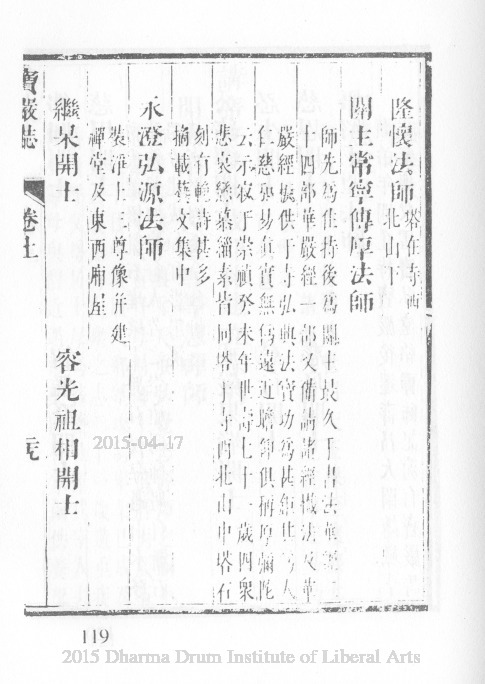 隆懷法師 塔在寺西
北山
關主常寧傳厚法師
師先為住持後為關主最久手書法華經二
十四部華嚴經一部又備請諸經懺法及華
嚴經板供于寺弘興法寶功為甚鉅其為人
仁慈樂易真實無偽遠近瞻仰俱稱厚彌陀
云示寂于崇禎癸未年世壽七十一歲四眾
悲哀戀慕緇素皆同塔 寺西北山中塔石
刻有輓詩甚多
摘載藝文集中
永澄弘源法師
裝淨土三尊像并建
禪堂及東西廂屋
繼杲開士 容光祖相開士
寶嚴誌 卷上 二元
2015-04-17
119
2015 Dharma Drum Institute of Liberal Arts